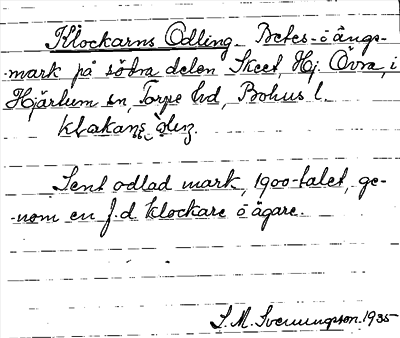 Klockarns Odling. Betes- o ängs-
-mark på södra delen Skeet, Hj. Övra, i
Hjärtum sn, Torpe hd, Bohus l.
Sent odlad mark, 1900-talet, ge-
-nom en f.d. klockare o ägare.
S. M. Svenungson. 1935